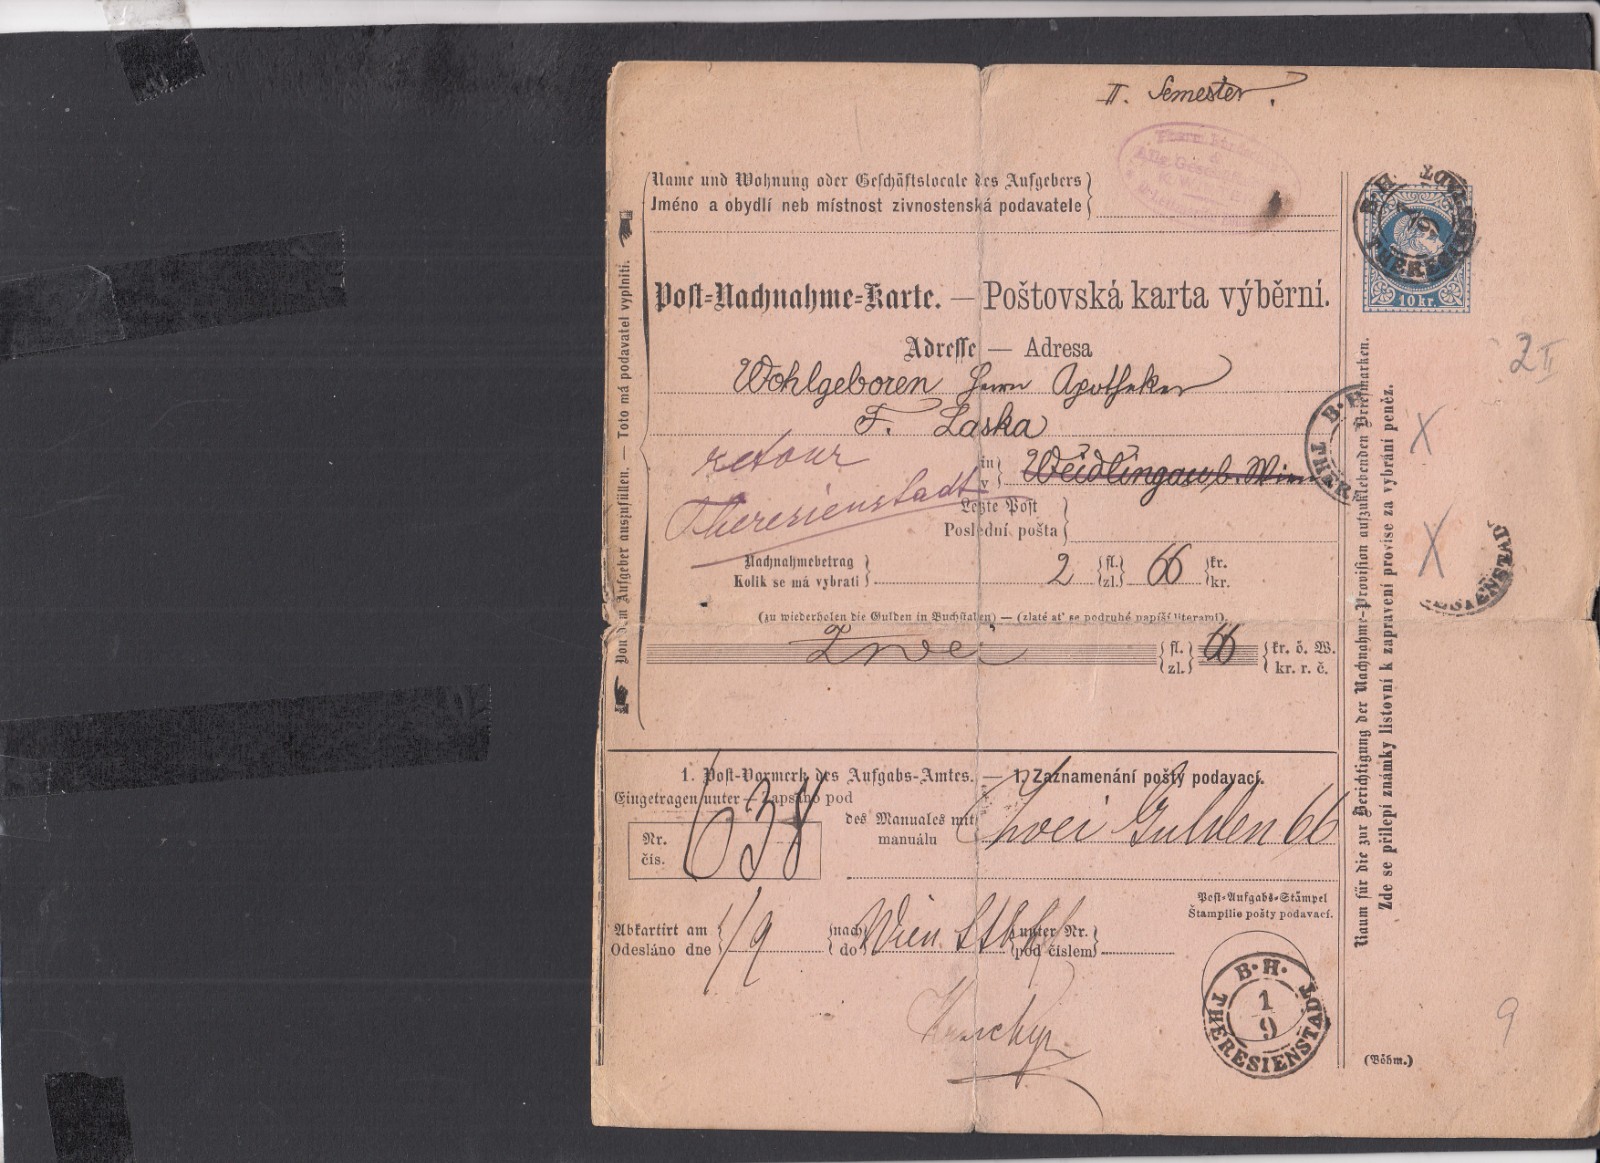 II. Semester.
Name und Wohnung oder Geschäftslocale des Aufgebers
Jméno a obydlí neb místnost zivnostenská podavatele
B. H. THERESIENSTADT
10 kr.
Post-Nachnahme-Karte. — Poštovská karta výběrní.
Adresse — Adresa
Wohlgeboren Herrn Apotheker
F. Laska
retour
in
v
Weidlingau b. Wien
Theresienstadt
Letzte Post
Poslední pošta
Nachnahmebetrag
Kolik se má vybrati
2 fl. zl. 66 kr. kr.
(zu wiederholen die Gulden in Buchstaben) — (zlaté ať se podruhé papíší literami).
Zwei fl. zl. 66 kr. ö. W. kr. r. č.
Von dem Aufgeber auszufüllen. — Toto má podavatel vyplniti.
1. Post-Vormerk des Aufgabs-Amtes. — 1. Zaznamenání pošty podavací.
Eingetragen unter — Zapsáno pod
Nr.
čís.
638
des Manuales mit
manuálu
Zwei Gulden 66
Abkartirt am
Odesláno dne
1/9
nach
do
Wien
unter Nr.
pod číslem
Post-Aufgabs-Stämpel
Štampilie pošty podavací.
B. H. THERESIENSTADT
1
9
Raum für die zur Berichtigung der Nachnahme-Provision aufzuklebenden Briefmarken.
Zde se přilepí známky listovní k zapravení provise za vybrání peněz.
B. H. THER
ESIENSTAD
2 II
X
X
9
(Böhm.)